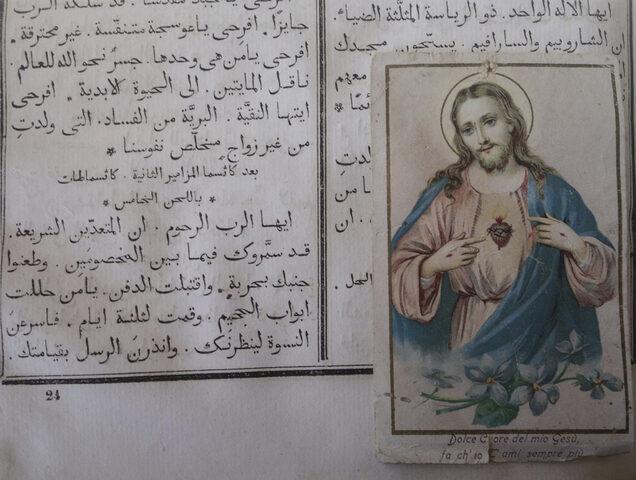 ايها الاله الواحد . ذو الرياسة المثلثة الضياء .
ان الشاروبيم والسارافيم . يسبحون . مجدك
معهم
ئمًا *
يا من
. ان
سلكه الرب
جايزًا . افرحي ياعوسجة متنفسة . غير محترقة *
افرحي يامن هي وحدها . جسرٌ نحو الله للعالم .
ناقل المايتين . الى الحيوة الابدية * افرحي
ايتها النقيَّة . البريَّة من الفساد . التي ولدتِ
من غير زواج مخلّص نفوسنا *
بعد كاثسما المزامير الثانية . كاثسماطات
* باللحن الخامس *
ايها الرب الرحوم . ان المتعدّين الشريعة .
قد سمَّروك فيما بين . وطعنوا
جنبك بحربةٍ . واقتبلت الدفن . يامن حللت
ابواب الجحيم . وقمت لثلثة ايامٍ . فاسرعنَ
النسوة لينظرنك . وانذرنَ الرسل بقيامتك .
24
Dolce Cuore del mio Gesù,
fa ch' io T' ami sempre più